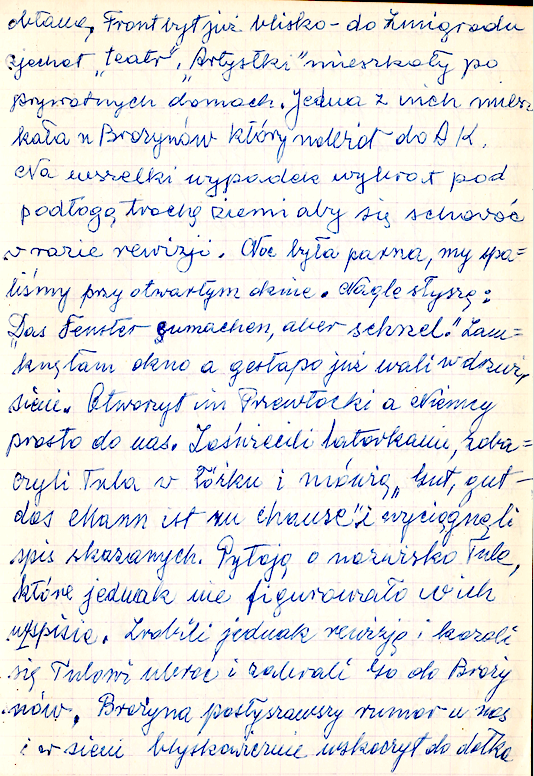 Front był już blisko - do Żmigrodu
zjechał "teatr". "Artystki" mieszkały po
prywatnych domach. Jedna z nich miesz
kała u Brożynów który należał do A K.
Na wszelki wypadek wybrał pod
podłogą trochę ziemi aby się schować
w razie rewizji. Noc była parna, my spa=
liśmy przy otwartym oknie. Nagle słyszę:
"Das Fenster zumachen, aber schnel." Zam=
knęłam okno a gestapo już wali w drzwi
sieni. Otworzył im Przewłocki a Niemcy
prosto do nas. Zaświecili latarkami, zoba=
czyli Tula w łóżku i mówią "Gut, gut -
das Mann ist zu Hause" i wyciągnęli
spis skazanych. Pytają o nazwisko Tula,
które jednak nie figurowało w ich
spisie. Zrobili jednak rewizję i kazali
się Tulowi ubrać i zabrali go do Broży
nów. Brożyna posłyszawszy rumor u nas
i w sieni błyskawicznie wskoczył do dołka